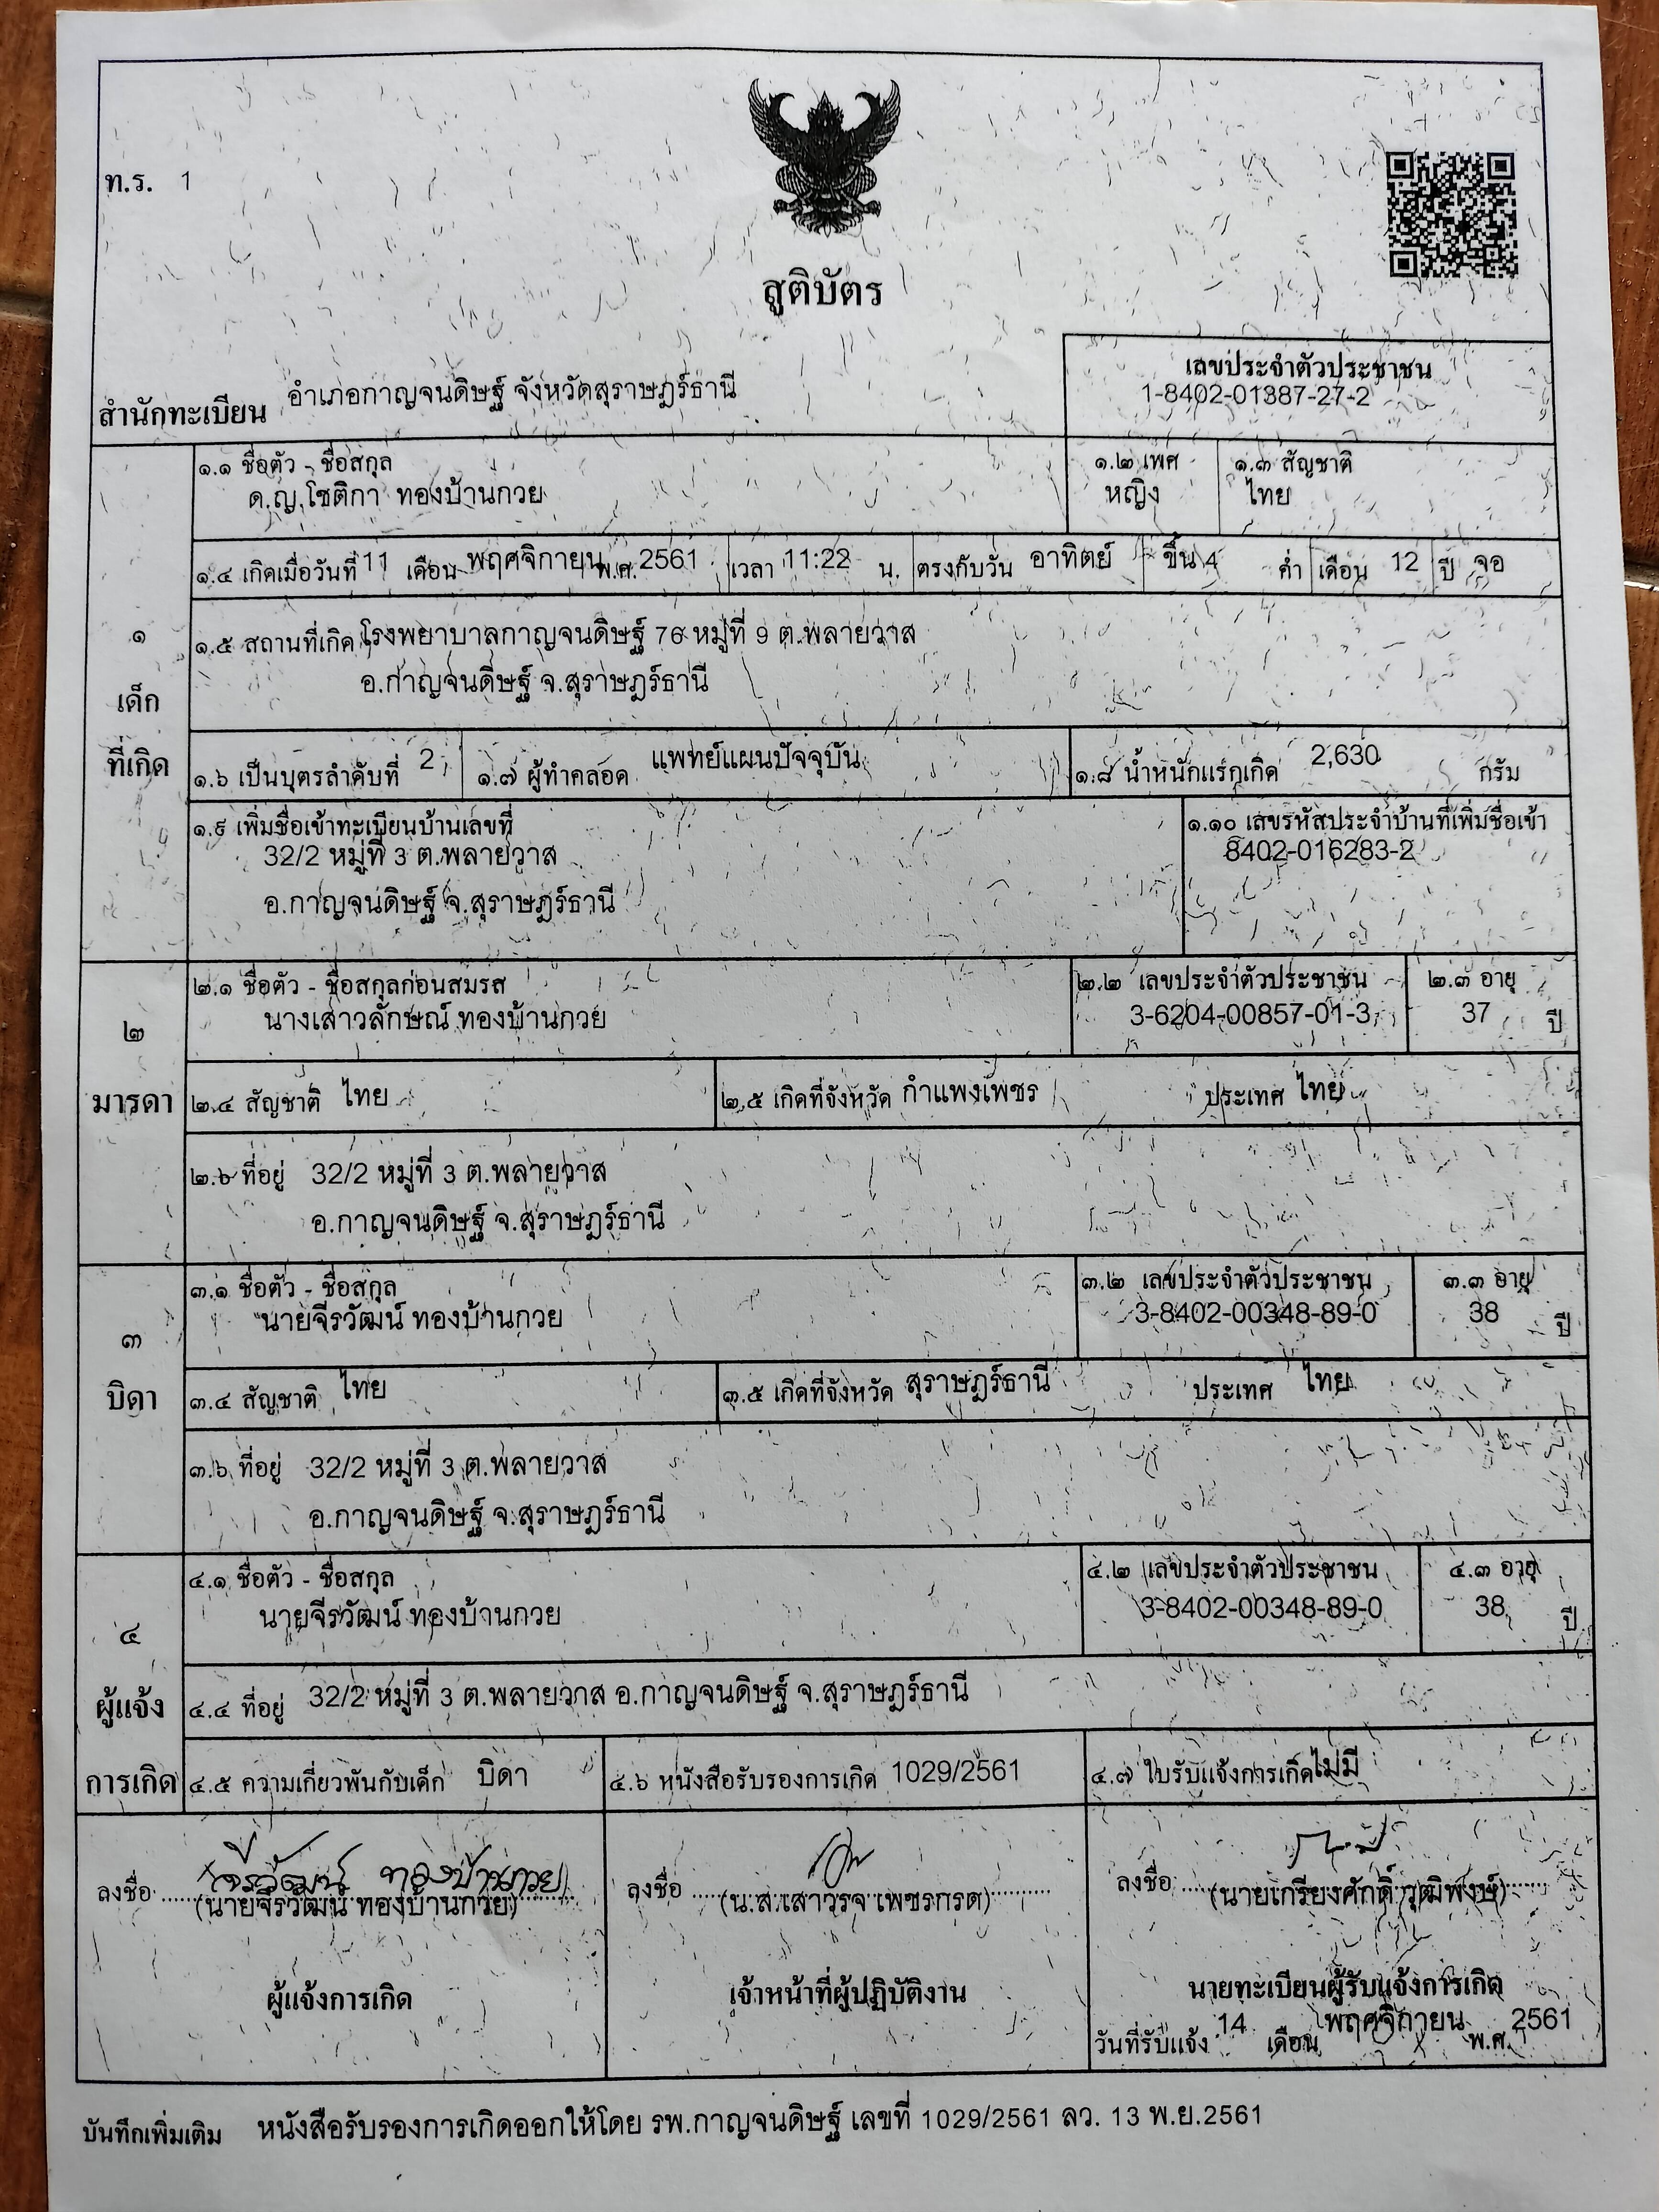 ท.ร. 1
สูติบัตร
สำนักทะเบียน อำเภอกาญจนดิษฐ์ จังหวัดสุราษฎร์ธานี
เลขประจำตัวประชาชน
1-8402-01387-27-2
๑ เด็กที่เกิด
๑.๑ ชื่อตัว - ชื่อสกุล
ด.ญ.โชติกา ทองบ้านกวย
๑.๒ เพศ
หญิง
๑.๓ สัญชาติ
ไทย
๑.๔ เกิดเมื่อวันที่ 11 เดือน พฤศจิกายน พ.ศ. 2561 เวลา 11:22 น. ตรงกับวัน อาทิตย์ ขึ้น 4 ค่ำ เดือน 12 ปี จอ
๑.๕ สถานที่เกิด โรงพยาบาลกาญจนดิษฐ์ 76 หมู่ที่ 9 ต.พลายวาส
อ.กาญจนดิษฐ์ จ.สุราษฎร์ธานี
๑.๖ เป็นบุตรลำดับที่ 2 ๑.๗ ผู้ทำคลอด แพทย์แผนปัจจุบัน ๑.๘ น้ำหนักแรกเกิด 2,630 กรัม
๑.๙ เพิ่มชื่อเข้าทะเบียนบ้านเลขที่
32/2 หมู่ที่ 3 ต.พลายวาส
อ.กาญจนดิษฐ์ จ.สุราษฎร์ธานี
๑.๑๐ เลขรหัสประจำบ้านที่เพิ่มชื่อเข้า
8402-016283-2
๒ มารดา
๒.๑ ชื่อตัว - ชื่อสกุลก่อนสมรส
นางเสาวลักษณ์ ทองบ้านกวย
๒.๒ เลขประจำตัวประชาชน
3-6204-00857-01-3
๒.๓ อายุ
37 ปี
๒.๔ สัญชาติ ไทย ๒.๕ เกิดที่จังหวัด กำแพงเพชร ประเทศ ไทย
๒.๖ ที่อยู่ 32/2 หมู่ที่ 3 ต.พลายวาส
อ.กาญจนดิษฐ์ จ.สุราษฎร์ธานี
๓ บิดา
๓.๑ ชื่อตัว - ชื่อสกุล
นายจีรวัฒน์ ทองบ้านกวย
๓.๒ เลขประจำตัวประชาชน
3-8402-00348-89-0
๓.๓ อายุ
38 ปี
๓.๔ สัญชาติ ไทย ๓.๕ เกิดที่จังหวัด สุราษฎร์ธานี ประเทศ ไทย
๓.๖ ที่อยู่ 32/2 หมู่ที่ 3 ต.พลายวาส
อ.กาญจนดิษฐ์ จ.สุราษฎร์ธานี
๔ ผู้แจ้งการเกิด
๔.๑ ชื่อตัว - ชื่อสกุล
นายจีรวัฒน์ ทองบ้านกวย
๔.๒ เลขประจำตัวประชาชน
3-8402-00348-89-0
๔.๓ อายุ
38 ปี
๔.๔ ที่อยู่ 32/2 หมู่ที่ 3 ต.พลายวาส อ.กาญจนดิษฐ์ จ.สุราษฎร์ธานี
๔.๕ ความเกี่ยวพันกับเด็ก บิดา ๔.๖ หนังสือรับรองการเกิด 1029/2561 ๔.๗ ใบรับแจ้งการเกิด ไม่มี
ลงชื่อ จีรวัฒน์ ทองบ้านกวย
(นายจีรวัฒน์ ทองบ้านกวย)
ผู้แจ้งการเกิด
ลงชื่อ
(น.ส.เสาวรจ เพชรกรด)
เจ้าหน้าที่ผู้ปฏิบัติงาน
ลงชื่อ
(นายเกรียงศักดิ์ วุฒิพงษ์)
นายทะเบียนผู้รับแจ้งการเกิด
วันที่รับแจ้ง 14 เดือน พฤศจิกายน พ.ศ. 2561
บันทึกเพิ่มเติม หนังสือรับรองการเกิดออกให้โดย รพ.กาญจนดิษฐ์ เลขที่ 1029/2561 ลว. 13 พ.ย.2561